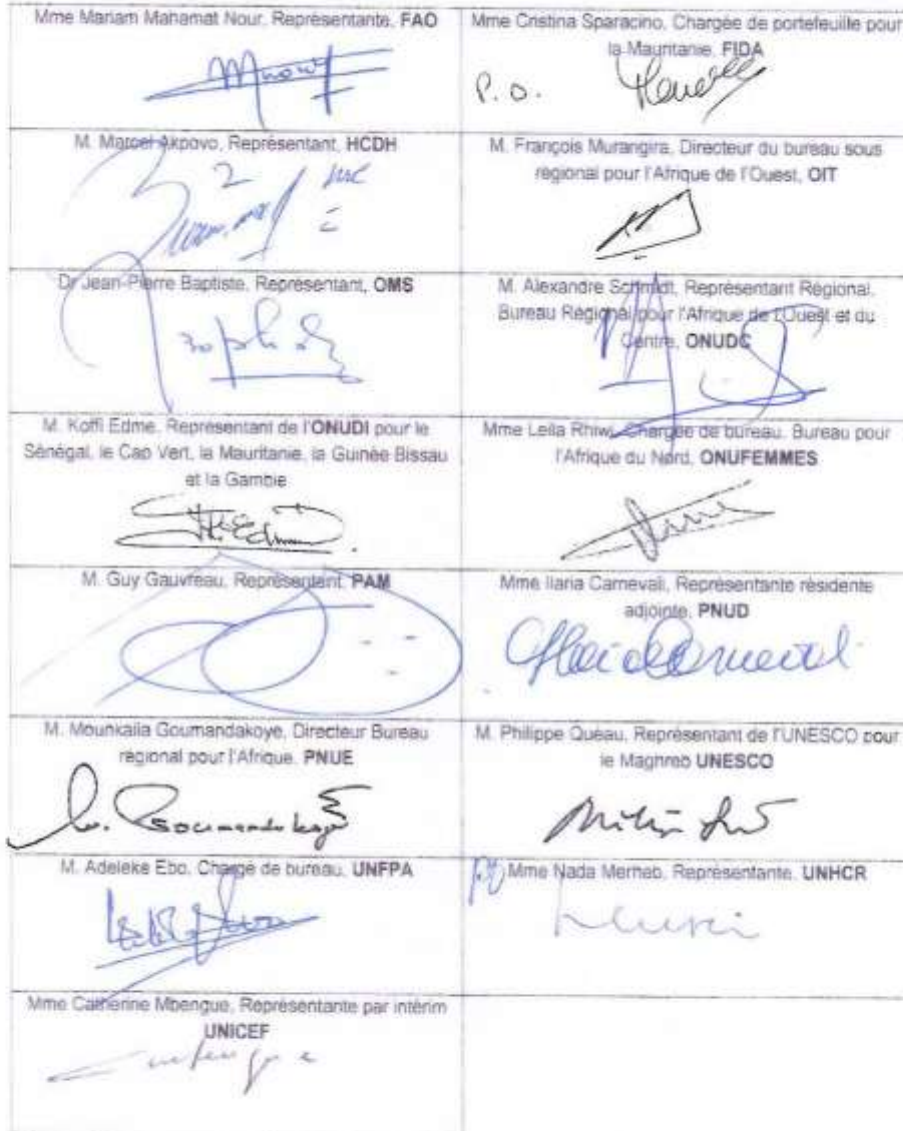 Mme Mariam Mahamat Nour, Représentante, FAO
Mme Cristina Sparacino, Chargée de portefeuille pour
la Mauritanie, FIDA
P.O.
M. Marcel Akpovo, Représentant, HCDH
M. François Murangira, Directeur du bureau sous
régional pour l'Afrique de l'Ouest, OIT
Dr Jean-Pierre Baptiste, Représentant, OMS
M. Alexandre Schmidt, Représentant Régional,
Bureau Régional pour l'Afrique de l'Ouest et du
Centre, ONUDC
M. Koffi Edme, Représentant de l'ONUDI pour le
Sénégal, le Cap Vert, la Mauritanie, la Guinée Bissau
et la Gambie
Mme Leila Rhiwi, Chargée de bureau, Bureau pour
l'Afrique du Nord, ONUFEMMES
M. Guy Gauvreau, Représentant, PAM
Mme Ilaria Carnevali, Représentante résidente
adjointe, PNUD
M. Mounkaila Goumandakoye, Directeur Bureau
régional pour l'Afrique, PNUE
M. Philippe Quéau, Représentant de l'UNESCO pour
le Maghreb UNESCO
M. Adeleke Ebo, Chargé de bureau, UNFPA
Mme Nada Merheb, Représentante, UNHCR
Mme Catherine Mbengue, Représentante par intérim
UNICEF